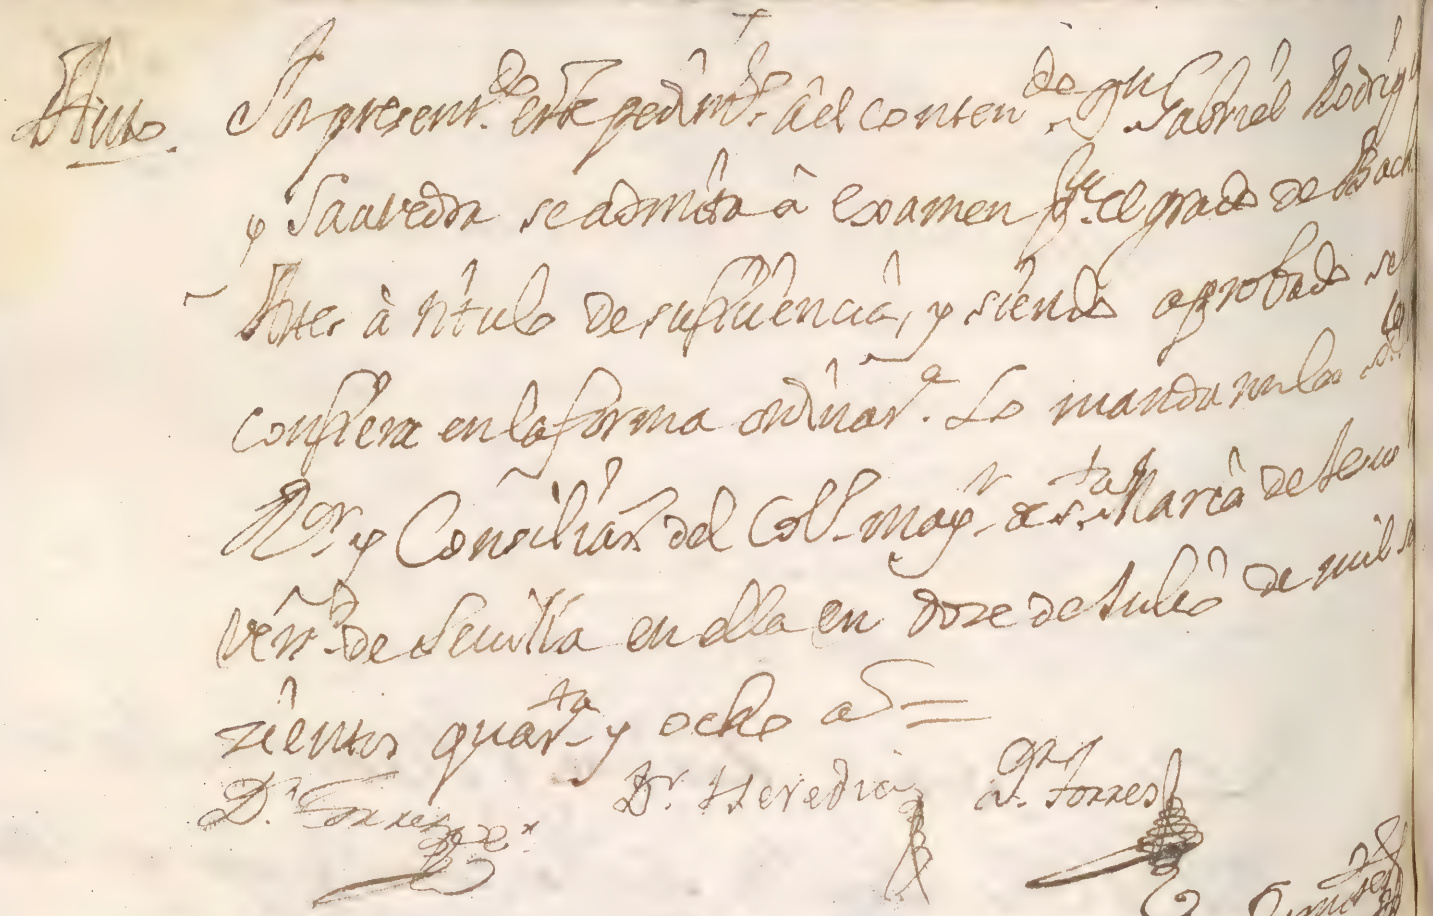 Auto
Por present.de este pedim.to â el conten.do Gabriel Rodrig
y Saavedra se admita â Examen p.a el grado de Bach
Artes â titulo de suficiencia, y siendo aprobado se le
confiera en la forma ordinar.a Lo mandaron los
R.or y Consiliar.s del Coll.o may.r de S.ta Maria de Jesus
Univ.d de Sevilla en ella en doze de Julio de mil se
zientos quar.ta y ocho a.s =
D.r Torres D.r Heredia Torres